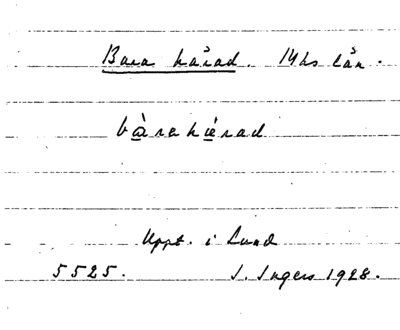 Bara härad. Mhs län.
bàrahẹ́rad
Uppt. i Lund
5525. I. Ingers 1928.